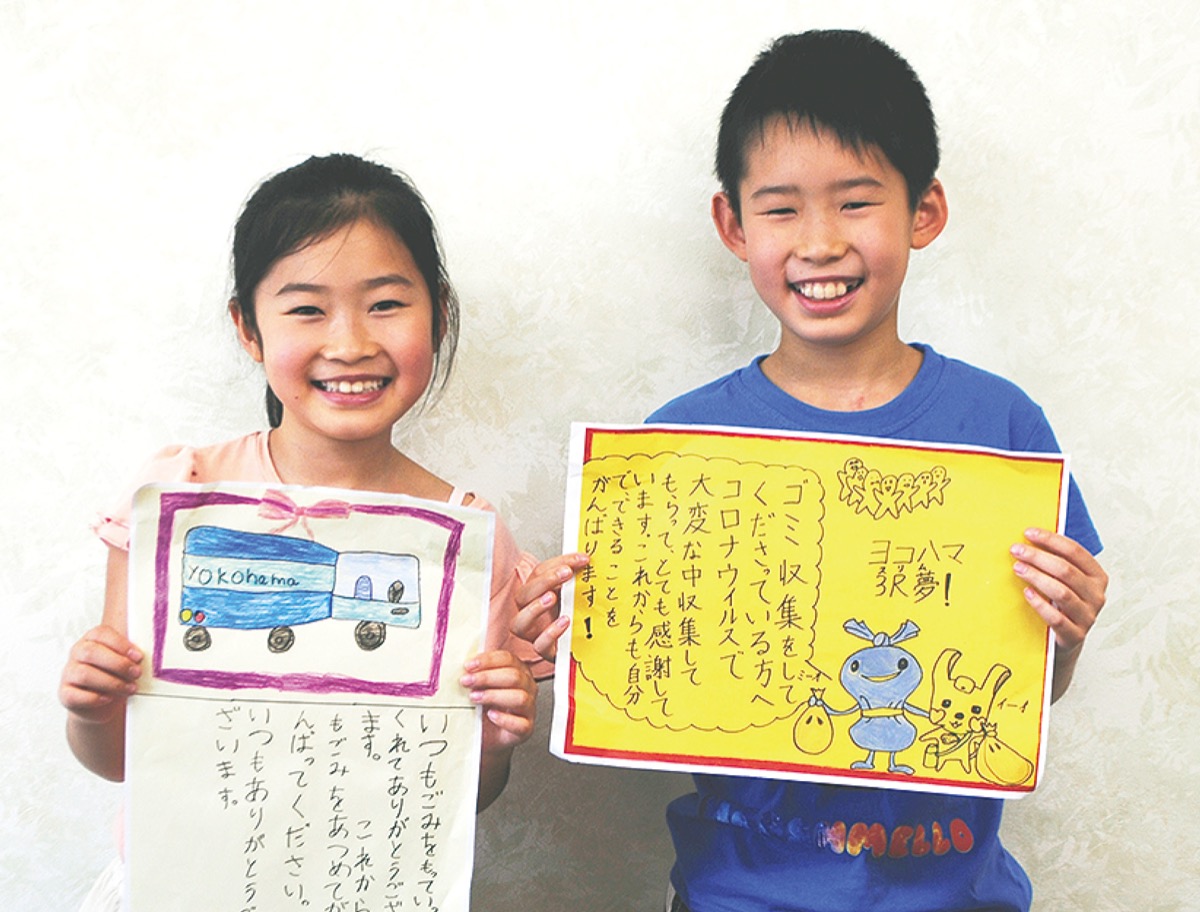 YOKOHama
いつもごみをもってい
くれてありがとうござ
ます。 これから
もごみをあつめてが
んばってください。
いつもありがとうご
ざいます。
ヨコハマ
3R夢!
ゴミ収集をして
くださっている方へ
コロナウイルスで
大変な中収集して
もらって、とても感謝して
います。これからも自分
で、できることを
がんばります!
MMELLO